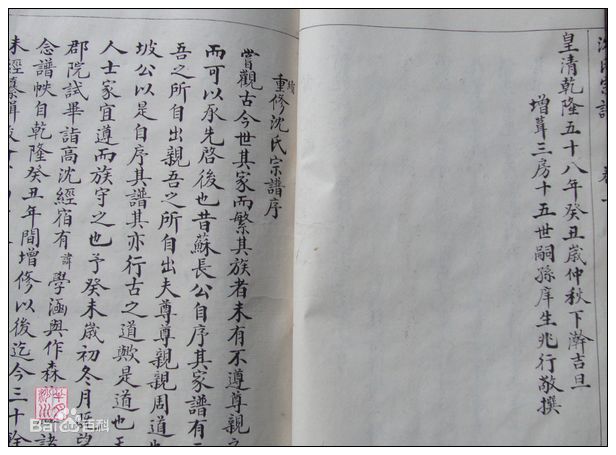 沈氏宗譜
皇清乾隆五十八年癸丑歲仲秋下澣吉旦
增葺三房十五世嗣孫庠生兆行敬撰
重修沈氏宗譜序
嘗觀古今世其家而繁其族者未有不遵尊親
而可以承先啓後也昔蘇長公自序其家譜有
吾之所自出親吾之所自出夫尊尊親親周道也
坡公以是自序其譜其亦行古之道歟是道也
人士家宜遵而族守之也予癸未歲初冬月
郡院試畢詣高沈經宿有諱學涵與作森諸
念譜帙自乾隆癸丑年間增修以後迄今三十餘
未經
Baidu百科